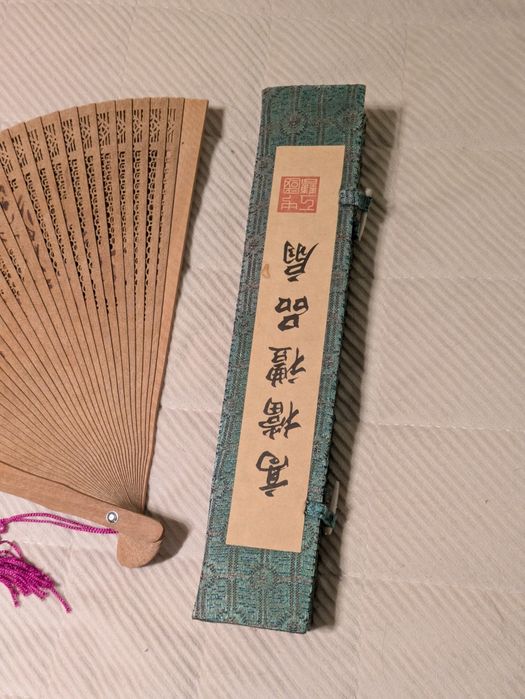 高檔禮品扇